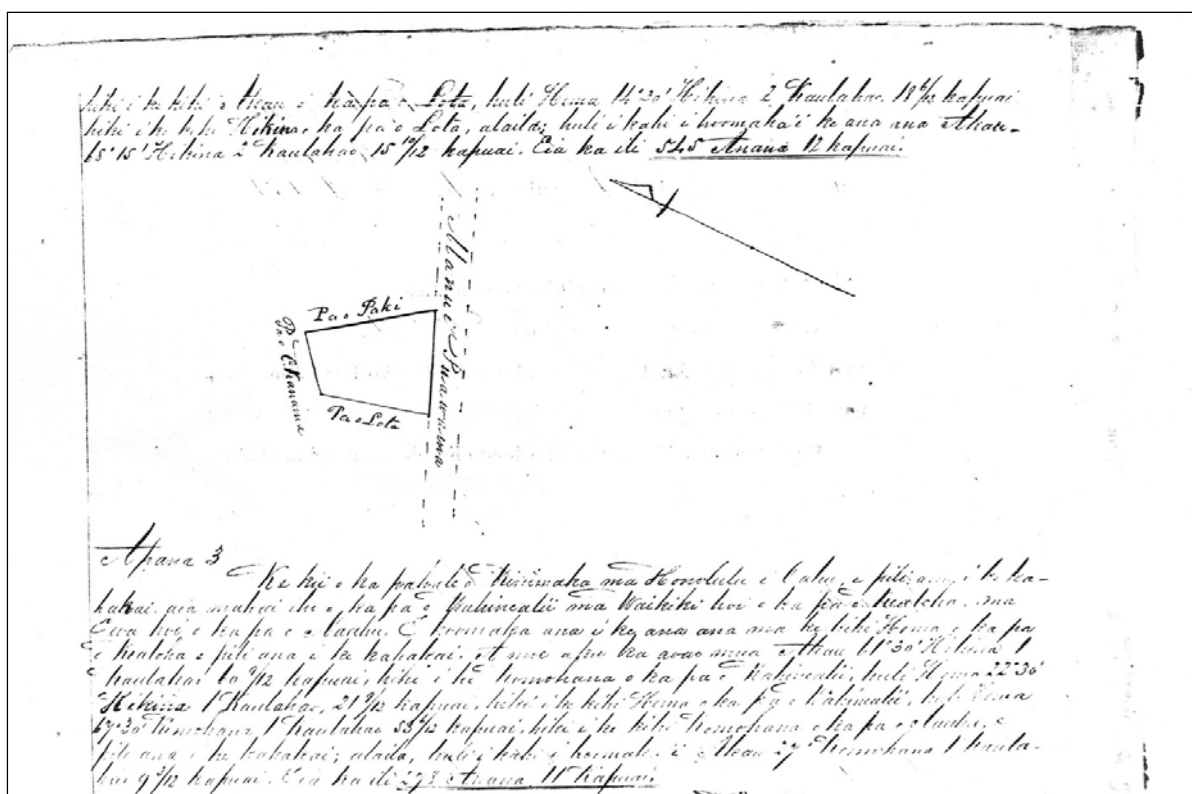 hiki i ke kihi Akau o ka pa o Lota, huli Hema 14°30' Hikina 2 Kaulahao. 18 6/12 kapuai
hiki i ke kihi Hikina o ka pa o Lota, alaila; huli i kahi i hoomaka'i ke ana ana Akau
65°15' Hikina 2 Kaulahao 15 10/12 kapuai. Eia ka ili 545 Anana 12 kapuai.
Alanui Puawaina
Pa o Paki
Pa o C. Kanaina
Pa o Lota
Apana 3
Ke kii o ka pahale o Kinimaka ma Honolulu i Oahu, e pili ana i ke ka-
hakai, aia mahai iho o ka pa o ma Waikiki hoi o ka pa o ma
Ewa hoi o ka pa o E hoomaka ana i ke ana ana ma ke kihi Hema o ka pa
o e pili ana i ke kahakai. A me a penei ka mua Akau 61°30' Hikina 1
Kaulahao 60 9/12 kapuai, hiki i ke Komohana o ka pa o huli Hema 22°30'
Hikina 1 Kaulahao, 21 9/12 kapuai, hiki i ke kihi Hema o ka pa o huli Hema
67°30' Komohana 1 Kaulahao 53 kapuai, hiki i ke kihi Komohana o ka pa o e
pili ana i ke kahakai; alaila, huli i kahi i hoomaka i Akau 27° Komohana 1 Kaula-
hao 9 3/12 kapuai. Eia ka ili 273 Anana 11 Kapuai.